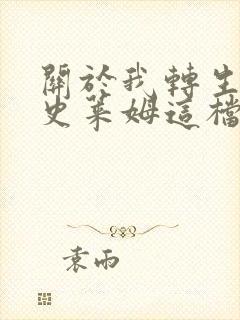 關於我轉生
史萊姆這檔
袁雨